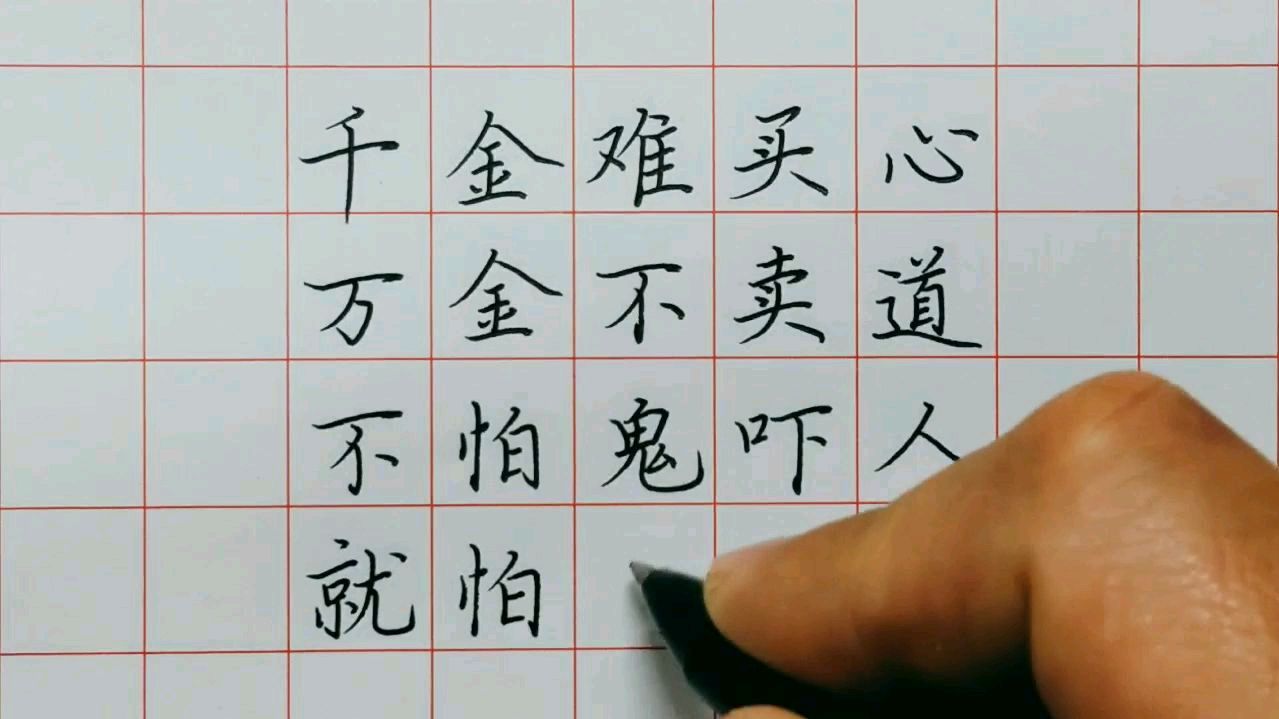 千金难买心
万金不卖道
不怕鬼吓人
就怕